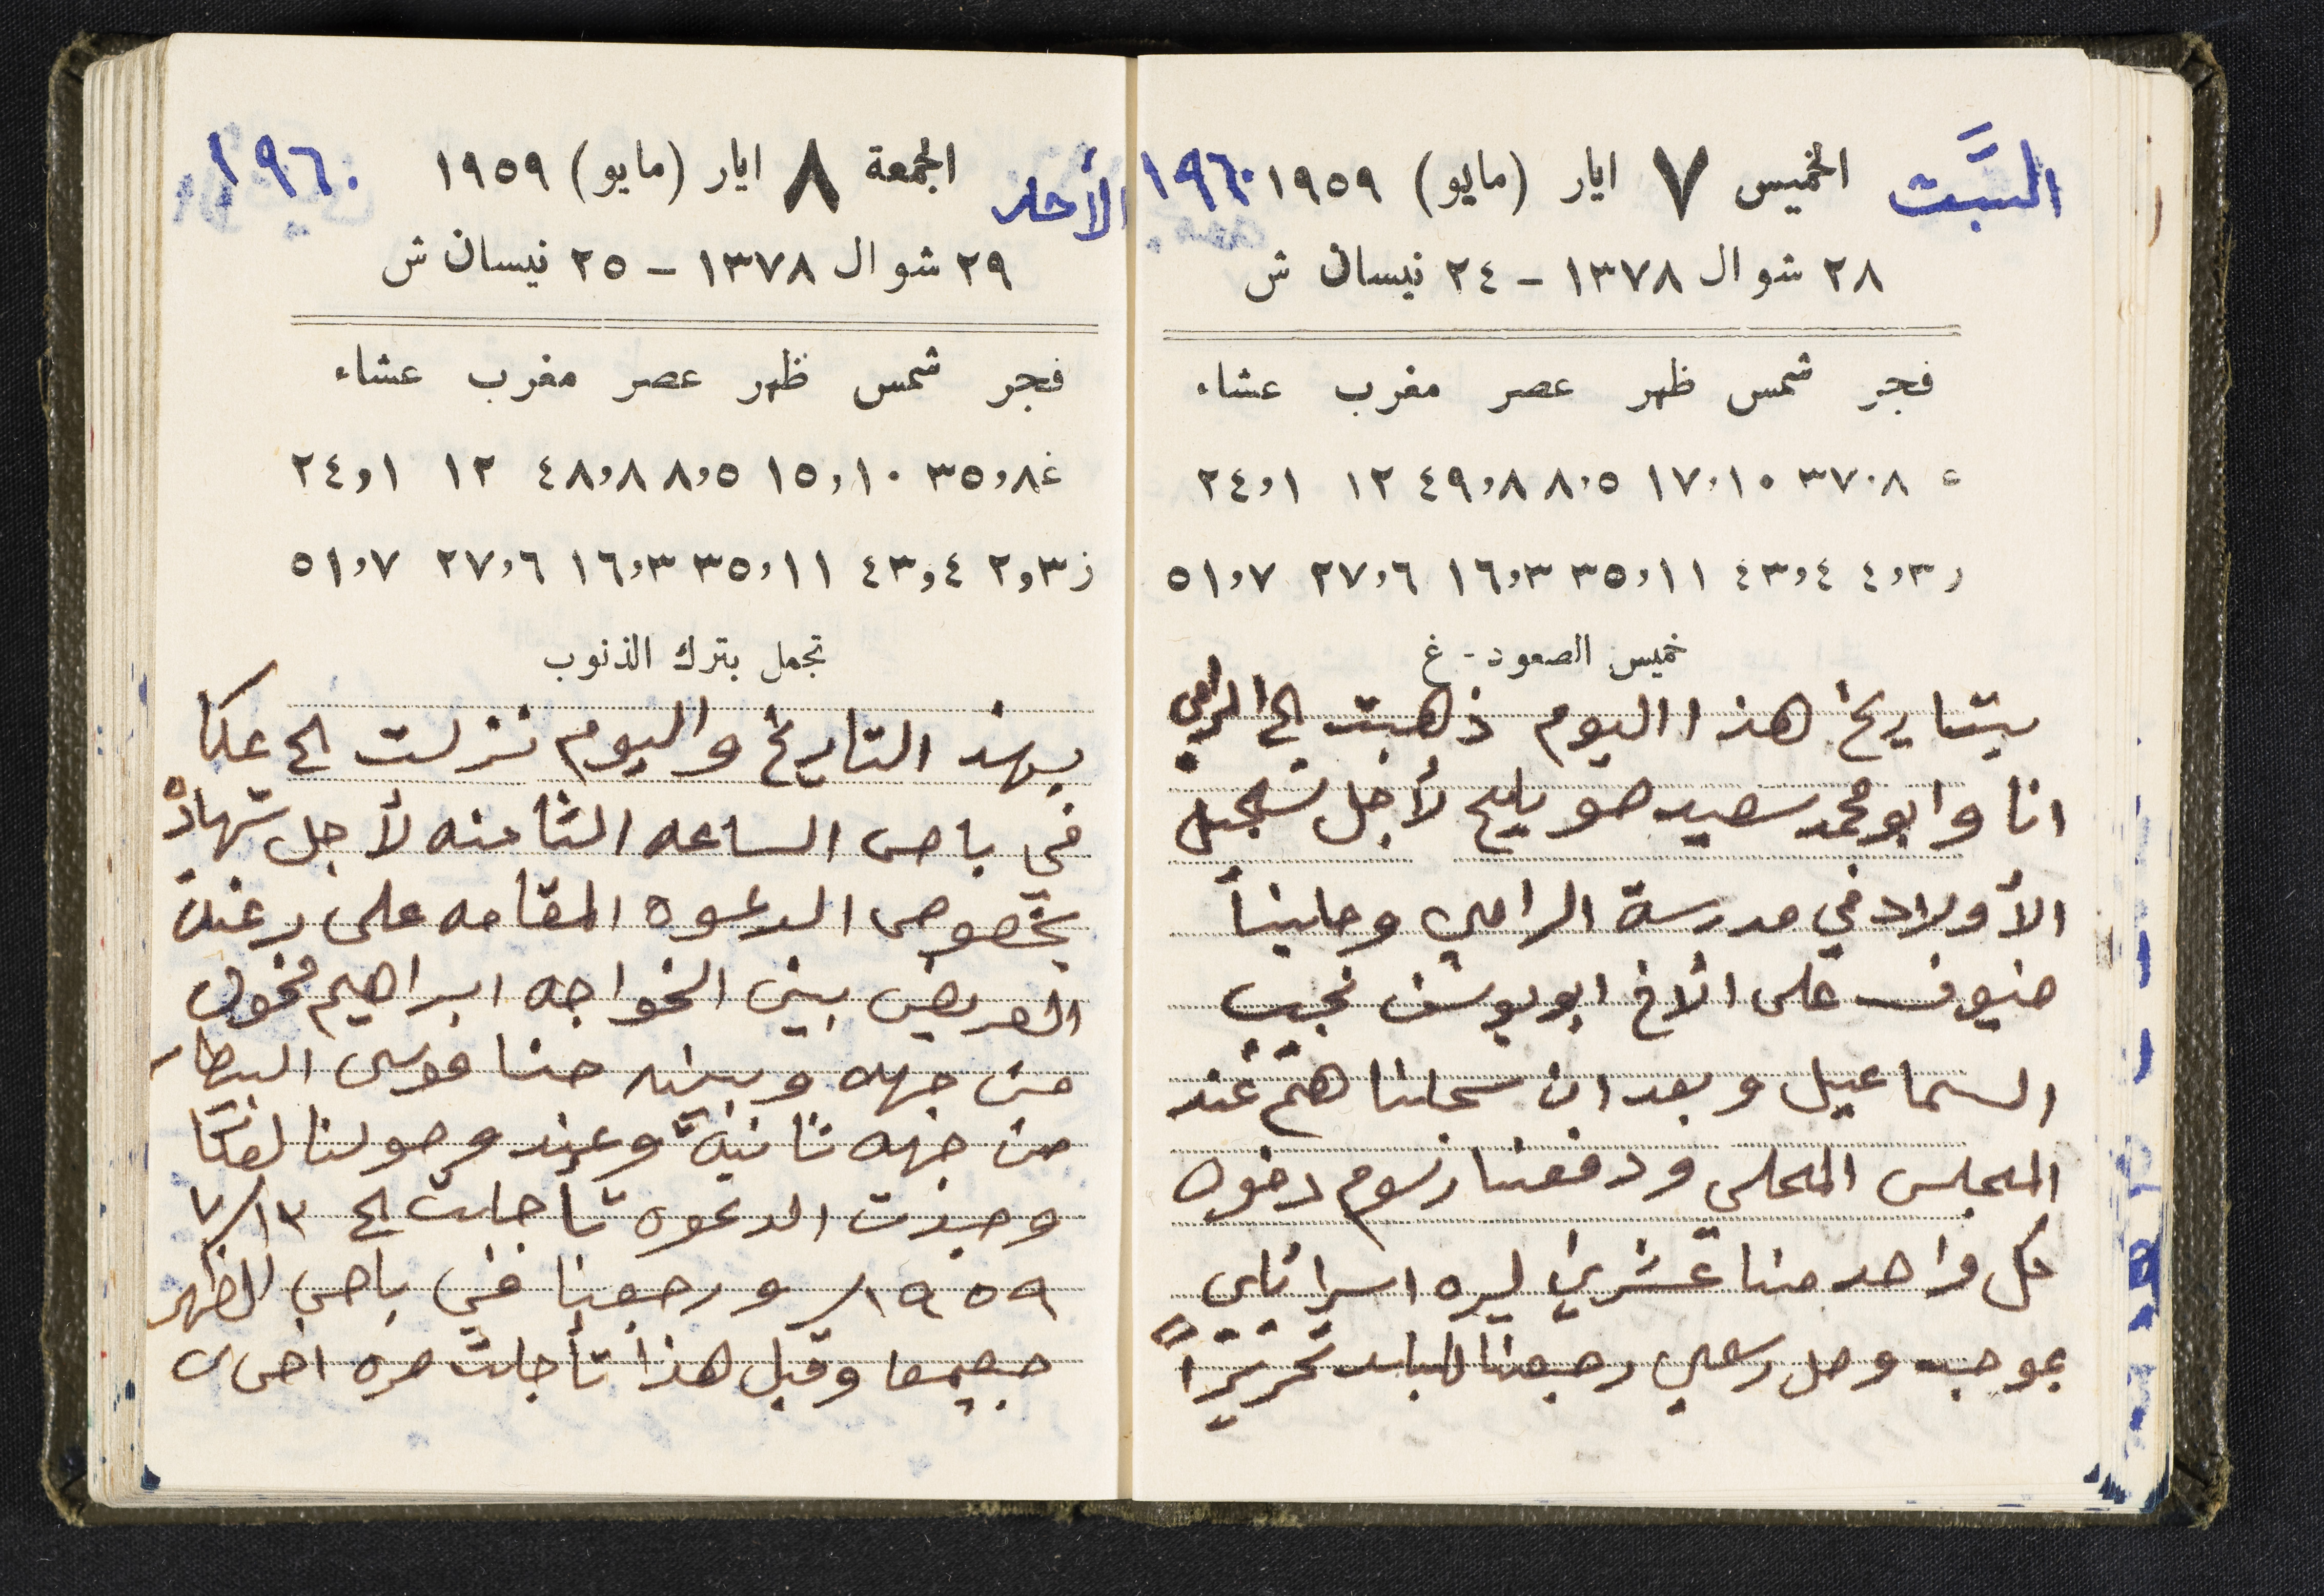 السَّبت الخميس ٧ ايار (مايو) ١٩٥٩ ١٩٦٠
٢٨ شوال ١٣٧٨ - ٢٤ نيسان ش
فجر شمس ظهر عصر مغرب عشاء
٣٧،٨ ١٧،١٠ ٨،٥ ٤٩،٨ ١٢ ٢٤،١
ز ٤،٣ ٤٣،٤ ٣٥،١١ ١٦،٣ ٢٧،٦ ٥١،٧
خميس الصعود - غ
بتاريخ هذا اليوم ذهبت الى الرامي
انا وابو محمد سعيد صويلح لأجل تسجيل
الأولاد في مدرسة الرامي وحلينأ
ضيوف على الاخ ابو يوسف نجيب
السماعيل وبعد ان سجلناهم عند
المجلس المحلي ودفعنا رسوم دخول
كل واحد منا عشرين ليره اسرائيلي
بموجب وصل رسمي رجعنا للبلد تحريراً
الأحد الجمعة ٨ ايار (مايو) ١٩٥٩ ١٩٦٠
٢٩ شوال ١٣٧٨ - ٢٥ نيسان ش
فجر شمس ظهر عصر مغرب عشاء
غ ٣٥،٨ ١٥،١٠ ٨،٥ ٤٨،٨ ١٢ ٢٤،١
ز ٢،٣ ٤٣،٤ ٣٥،١١ ١٦،٣ ٢٧،٦ ٥١،٧
تجمل بترك الذنوب
بهذ التاريخ واليوم نزلت الى عكا
في باص الساعه الثامنه لأجل شهاده
بخصوص الدعوه المقامه على
العريض بين الخواجه ابراهيم مخول
من جهه وبين حنا موسى البيطار
من جهه ثانية وعند وصولنا لعكا
وجدت الدعوه تأجلت الى ٧/١٣
١٩٥٩ ورجعنا في باص الظهر
جميعا وقبل هذا تأجلت مره اخرى